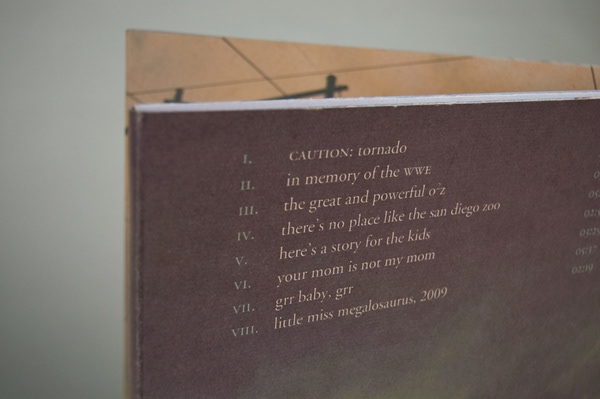 I. CAUTION: tornado
II. in memory of the WWE
III. the great and powerful o²z
IV. there's no place like the san diego zoo
V. here's a story for the kids
VI. your mom is not my mom
VII. grr baby, grr
VIII. little miss megalosaurus, 2009